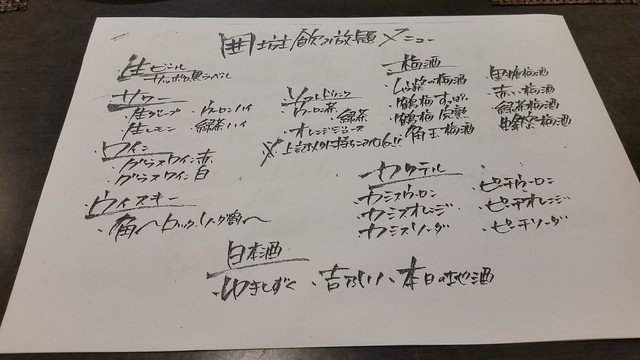 飲み放題メニュー
生ビール
サッポロ黒ラベル
サワー
・生グレープ ・ウーロンハイ
・生レモン ・緑茶ハイ
・ワイン
・グラスワイン 赤
・グラスワイン 白
・ウィスキー
・角 ロック
ソフトドリンク
・ウーロン茶 ・緑茶
・オレンジジュース
梅酒
梅酒
・鶴梅 すっぱい
・鶴梅 完熟
・角玉梅酒
・黒糖梅酒
・赤い梅酒
・緑茶梅酒
・蜂蜜梅酒
カクテル
・カシスウーロン
・カシスオレンジ
・カシスソーダ
・ピーチウーロン
・ピーチオレンジ
・ピーチソーダ
日本酒
・ゆきしずく ・吉乃川 ・本日の地酒